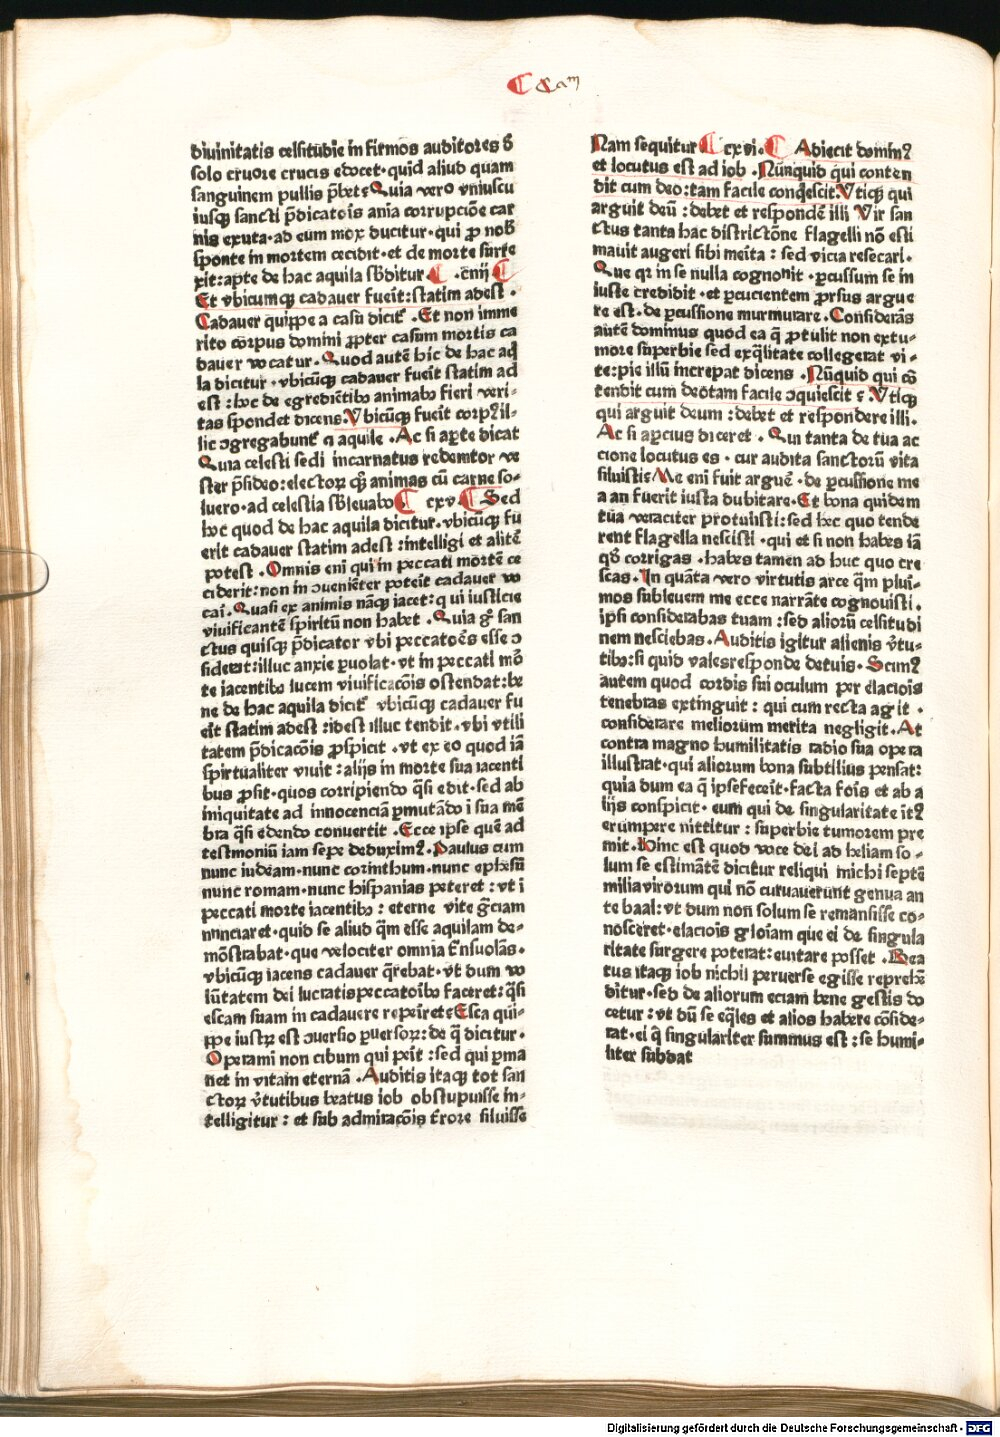 ¶ Cam
diuinitatis celsitudīe in firmos auditores d̄
solo cruore crucis edocet·quid aliud quam
sanguinem pullis p̄bet⁊ Quia vero vniuscu
iusqꝫ sancti p̄dicatoīs anīa corrupciōe car
nis exuta·ad eum mox ducitur·qui ꝓ nob̄
sponte in mortem cecidit·et de morte surre
xit:apte de hac aquila sb̄ditur ¶ ·cxiiij ¶
Et vbicumqꝫ cadauer fueīt:statim adest·
Cadauer quippe a casu dicit᷑·Et non imme
rito corpus domini ꝓpter casum mortis ca
dauer vocatur·Quod autē hic de hac aq̄
la dicitur·vbicūqꝫ cadauer fueīt statim ad
est:hoc de egrediētibꝰ animabꝰ fieri veri-
tas spondet dicens·Vbicūqꝫ fueīt corpꝰ il-
lic ꝯgregabunt᷑ ⁊ aquile·Ac si apte dicat
Quia celesti sedi incarnatus redemtor ve
ster p̄sideo:electorꝝ qꝫ animas cū carne so-
luero·ad celestia sb̄leuabo ¶ cxv ¶ Sed
hoc quod de hac aquila dicitur·vbicūqꝫ fu
erit cadauer statim adest:intelligi et alitē
potest·Omnis eni qui in peccati mortē ce
ciderit:non in ꝯueniēter poteīt cadauer vo
cai·Quasi ex animis nāqꝫ iacet:q ui iusticie
viuificantē spiritū non habet·Quia gͦ san
ctus quisqꝫ p̄dicator vbi peccatoēs esse ꝯ
siderat:illuc anxie ꝑuolat·vt in peccati mō
te iacentibꝰ lucem viuificacōis ostendat:be
ne de hac aquila dicit᷑ vbicūqꝫ cadauer fu
eīt statim adest:idest illuc tendit·vbi vtili
tatem p̄dicacōis ꝓspicit·vt ex eo quod iā
spirtualiter viuit:alijs in morte sua iacenti
bus ꝓsit·quos corripiendo q̄si edit·sed ab
iniquitate ad innocenciā ꝑmutādo ī sua mē
bra q̄si edendo conuertit·Ecce ipse quē ad
testmoniū iam sepe deduximꝰ·Paulus cum
nunc iudeam·nunc corinthum·nunc ephesū
nunc romam·nunc hispanias peteret:vt ī
peccati morte iacentibꝰ:eterne vite gr̄ciam
nunciaret·quid se aliud q̄m esse aquilam de-
mōstrabat·que velociter omnia t᷑nsuolās·
vbicūqꝫ iacens cadauer q̄rebat·vt dum vo
lūtatem dei lucratis peccatoībꝰ faceret:q̄si
escam suam in cadauere repeiret⁊ Esca qui-
ppe iustorꝝ est ꝯuersio ꝑuersorꝝ:de q̄ dicitur·
Operami non cibum qui peīt:sed qui ꝑma
net in vitam eternā·Auditis itaqꝫ tot san
ctorꝝ v̄tutibus beatus iob obstupuisse in-
telligitur:et sub admiracōis t᷑rore siluisse
Nam sequitur ¶ cxvi·¶ Adiecit dominꝰ
et locutus est ad iob·Nūnquid qui conten
dit cum deo:tam facile conq̄escit·Vtiqꝫ qui
arguit deū:debet et respondē illi Vir san
ctus tanta hac districtōne flagelli nō esti
mauit augeri sibi meīta:sed vicia resecari·
Que qꝛ in se nulla cognouit·ꝑcussum se in
iuste credidit·et ꝑcucientem ꝓrsus argue
re est·de ꝑcussione murmurare·Considerās
autē dominus quod ea q̄ ꝓtulit non extu-
more superbie sed exq̄litate collegerat vi-
te:pie illū increpat dicens·Nūquid qui cō
tendit cum deo tam facile ꝯquiescit⁊ Vtiqꝫ
qui arguit deum:debet et respondere illi·
Ac si aꝑcius diceret·Qui tanta de tua ac
cione locutus es·cur audita sanctorū vita
siluisti⁊ Me eni fuit arguē·de ꝑcussione me
a an fuerit iusta dubitare·Et bona quidem
tua veraciter protulisti:sed hec quo tende
rent flagella nescisti·qui et si non habes iā
qd̄ corrigas·habes tamen ad huc quo cre
scas·In quāta vero virtutis arce q̄m pluī-
mos subleuem me ecce narrāte cognouisti·
ipsi considerabas tuam:sed aliorū celsitudi
nem nesciebas·Auditis igitur alienis v̄tu-
tibꝰ:si quid vales responde de tuis·Scimꝰ
autem quod cordis sui oculum per elacioīs
tenebras extinguit:qui cum recta agit·
considerare meliorum merita negligit·At
contra magno humilitatis radio sua opera
illustrat·qui aliorum bona subtilius pensat:
quia dum ea q̄ ipse feceīt·facta foīs et ab a
lijs conspicit·eum qui de singularitate itꝰ
erumpere nititur:superbie tumorem pre
mit·Hinc est quod voce dei ad heliam so-
lum se estimātē dicitur reliqui michi septē
milia virorum qui nō curuauerunt genua an
te baal:vt dum non solum se remansisse co-
nosceret·elacioīs gloīam que ei de singula
ritate surgere poterat:euitare posset·Bea
tus itaqꝫ iob nichil peruerse egisse reprehē
ditur·sed de aliorum eciam bene gestis do
cetur:vt dū se eq̄les et alios habere cōside-
rat·ei q̄ singulariter summus est:se humi-
liter subdat
Digitalisierung gefördert durch die Deutsche Forschungsgemeinschaft - DFG